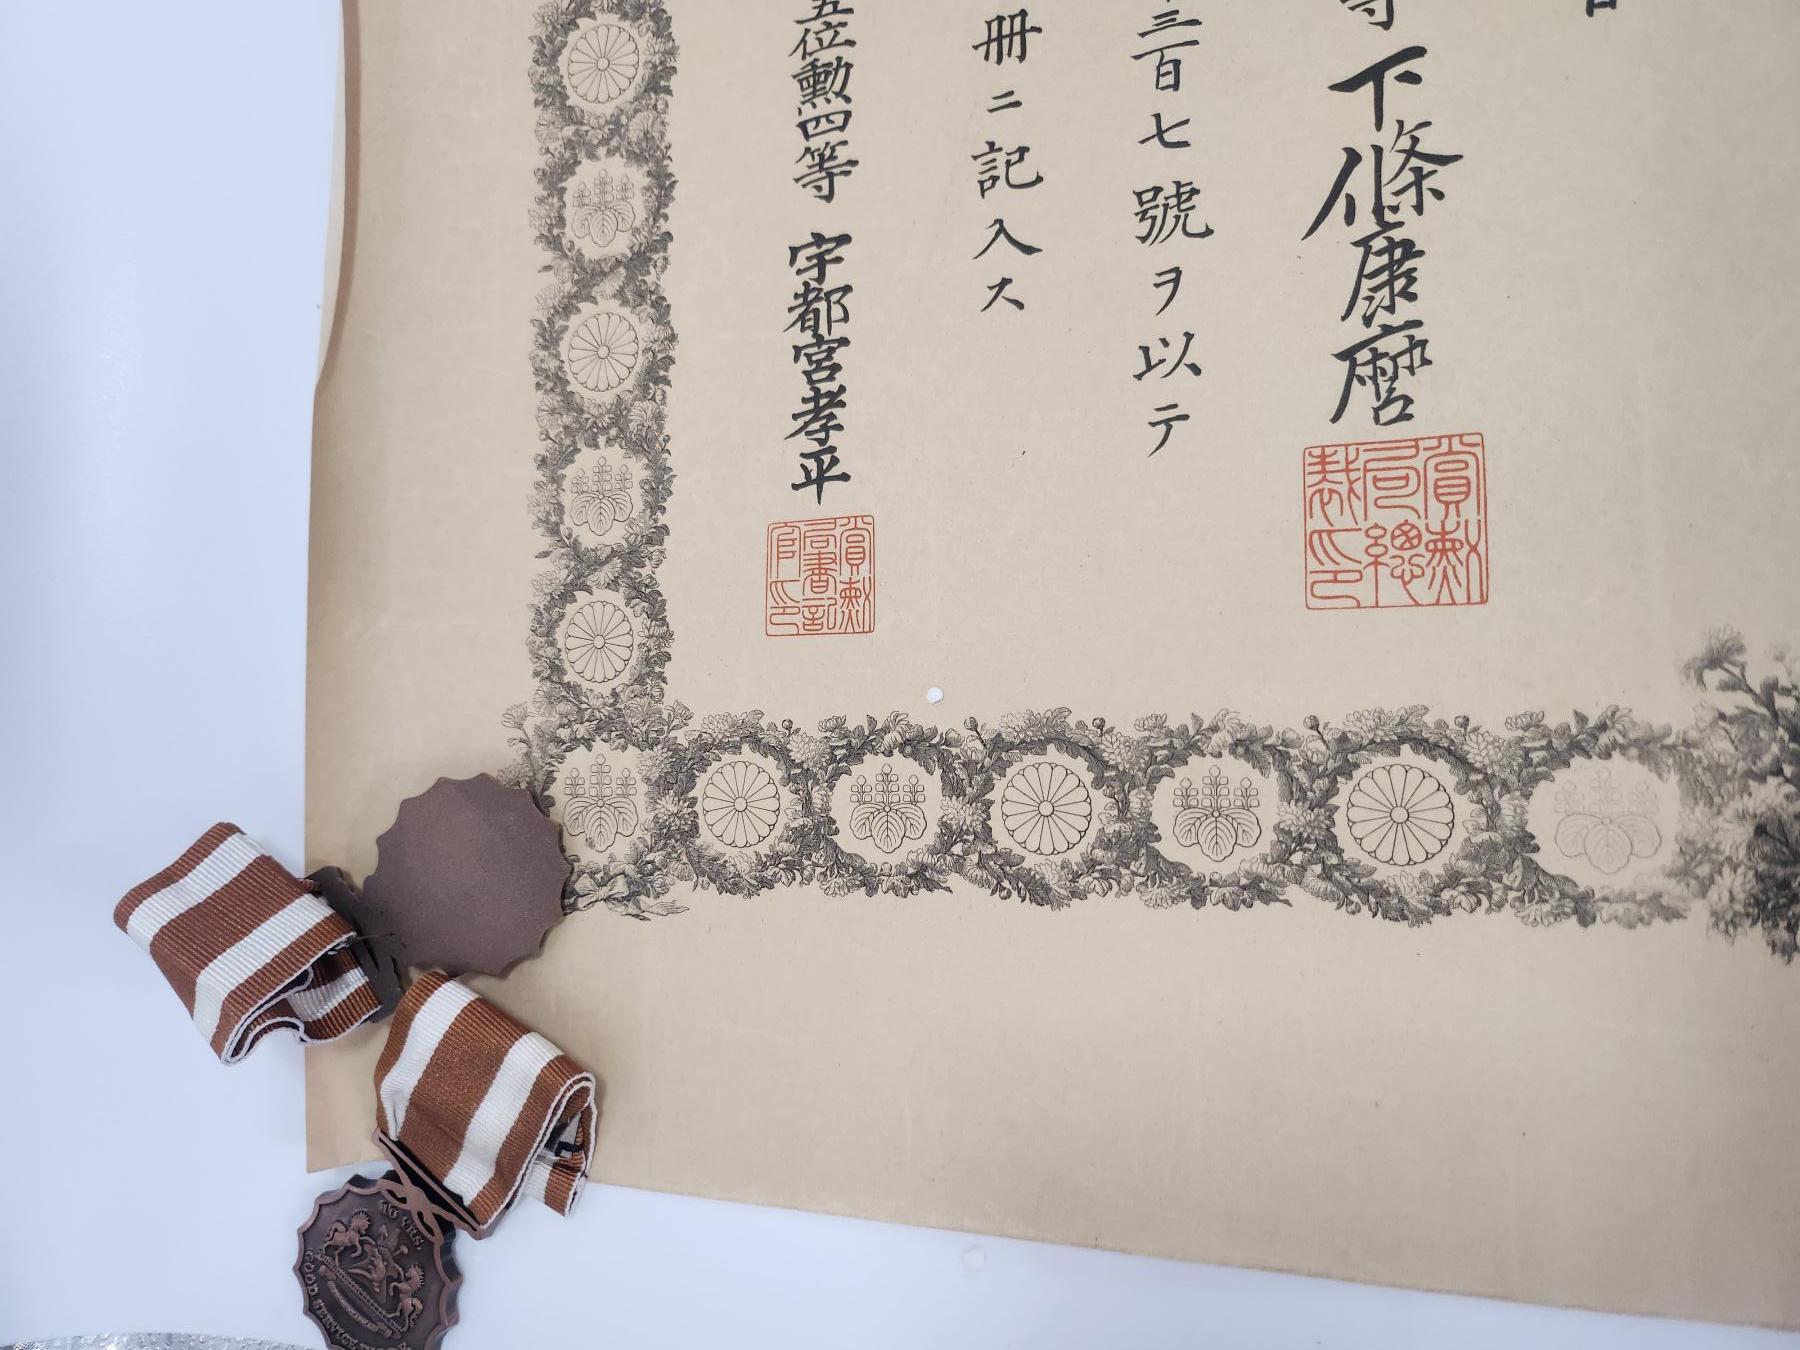 等 下條康麿
賞勲局總裁印
三百七號ヲ以テ
冊ニ記入ス
五位勲四等 宇都宮孝平
賞勲局書記官印
10 YRS.
GOOD SERVICE